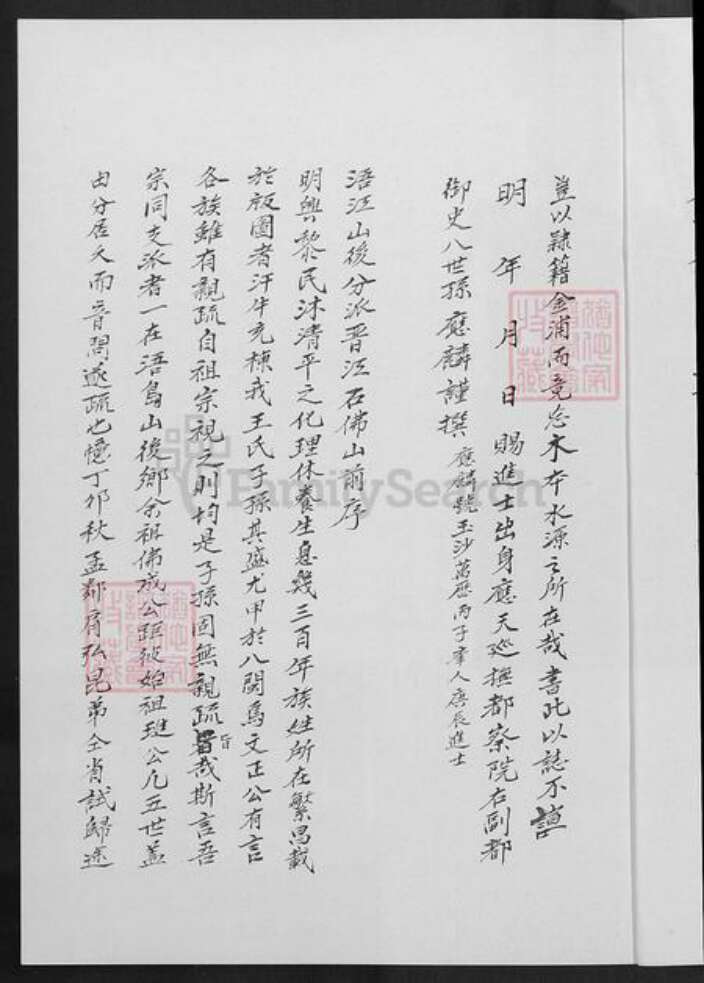 豈以隸籍金浦而竟忘木本水源之所在哉書此以誌不諼
明 年 月 日 賜進士出身應天巡撫都察院右副都
御史八世孫應麟謹撰 應麟號玉沙萬歷丙子舉人庚辰進士
浯江山後分派晋江石佛山前序
明興黎民沐清平之化理休養生息幾三百年族姓所在繁昌載
於版圖者汗牛充棟我王氏子孫其盛尤甲於八閩烏文正公有言
各族雖有親疏自祖宗視之則均是子孫固無親疏旨哉斯言吾
宗同支派者一在浯島山後鄉余祖佛成公距彼始祖璉公凡五世蓋
由分居久而音問遂疏也憶丁卯秋孟鄰胥弘昆弟仝肖試歸途
FamilySearch